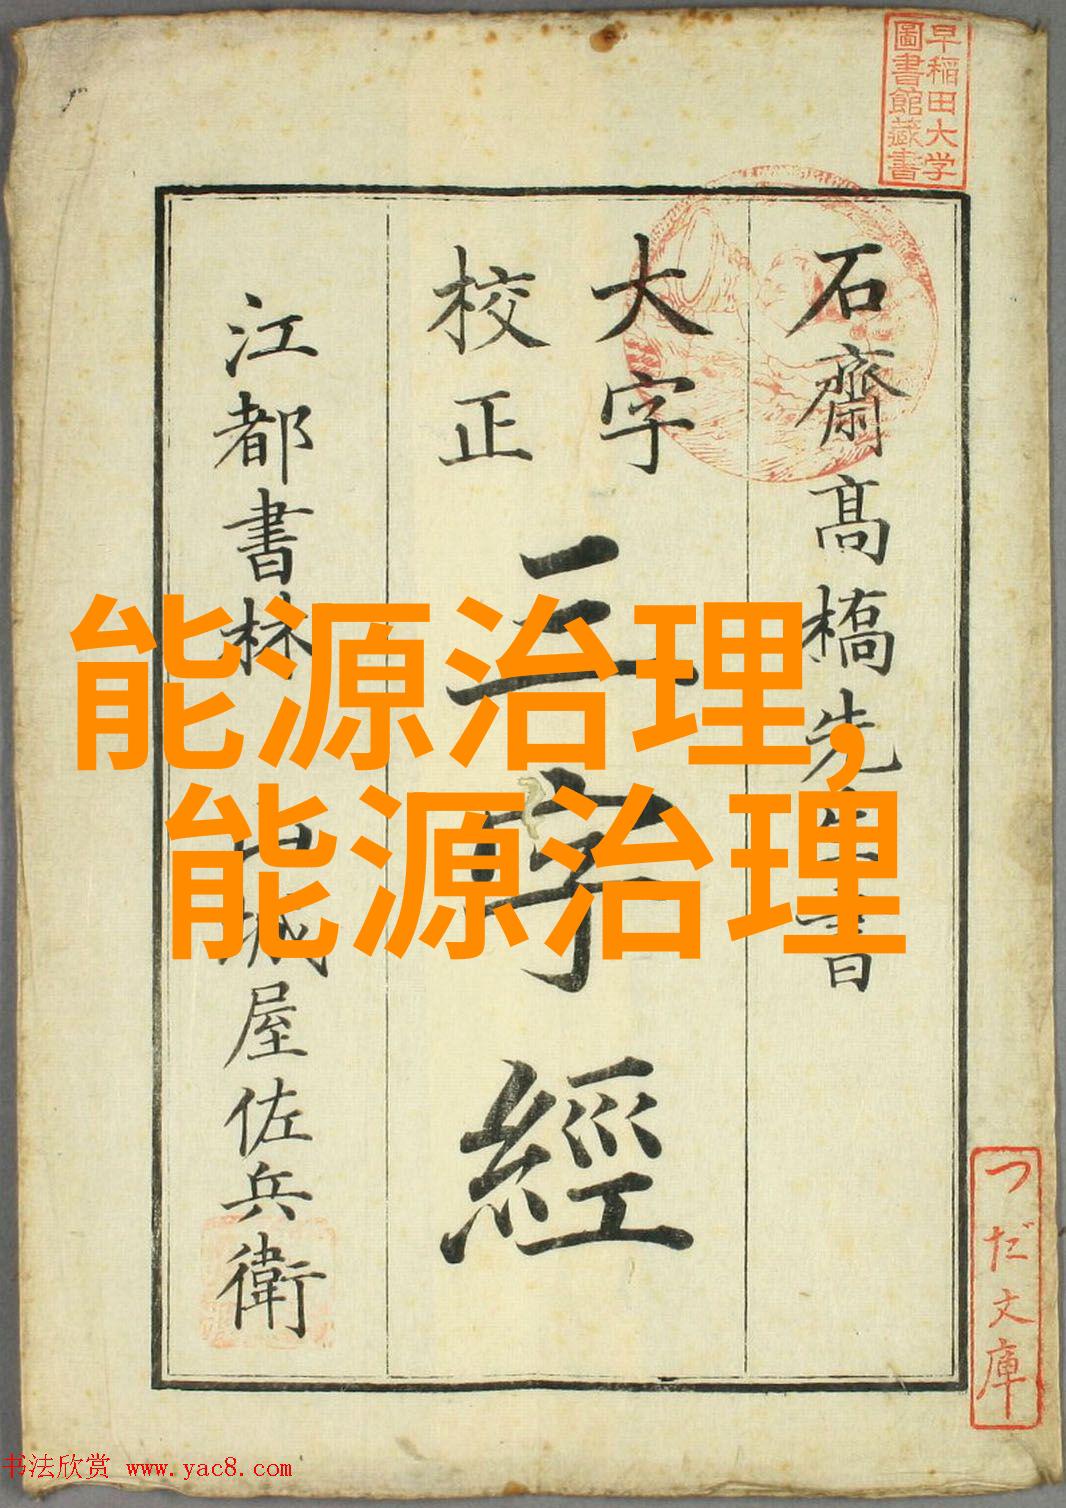 早稲田大学
圖書館藏書
石齋髙橋先生書
大字
校正
三字經
江都書林
城屋佐兵衛
能源治理,
能源治理
つだ文庫
书法欣赏 www.yac8.com